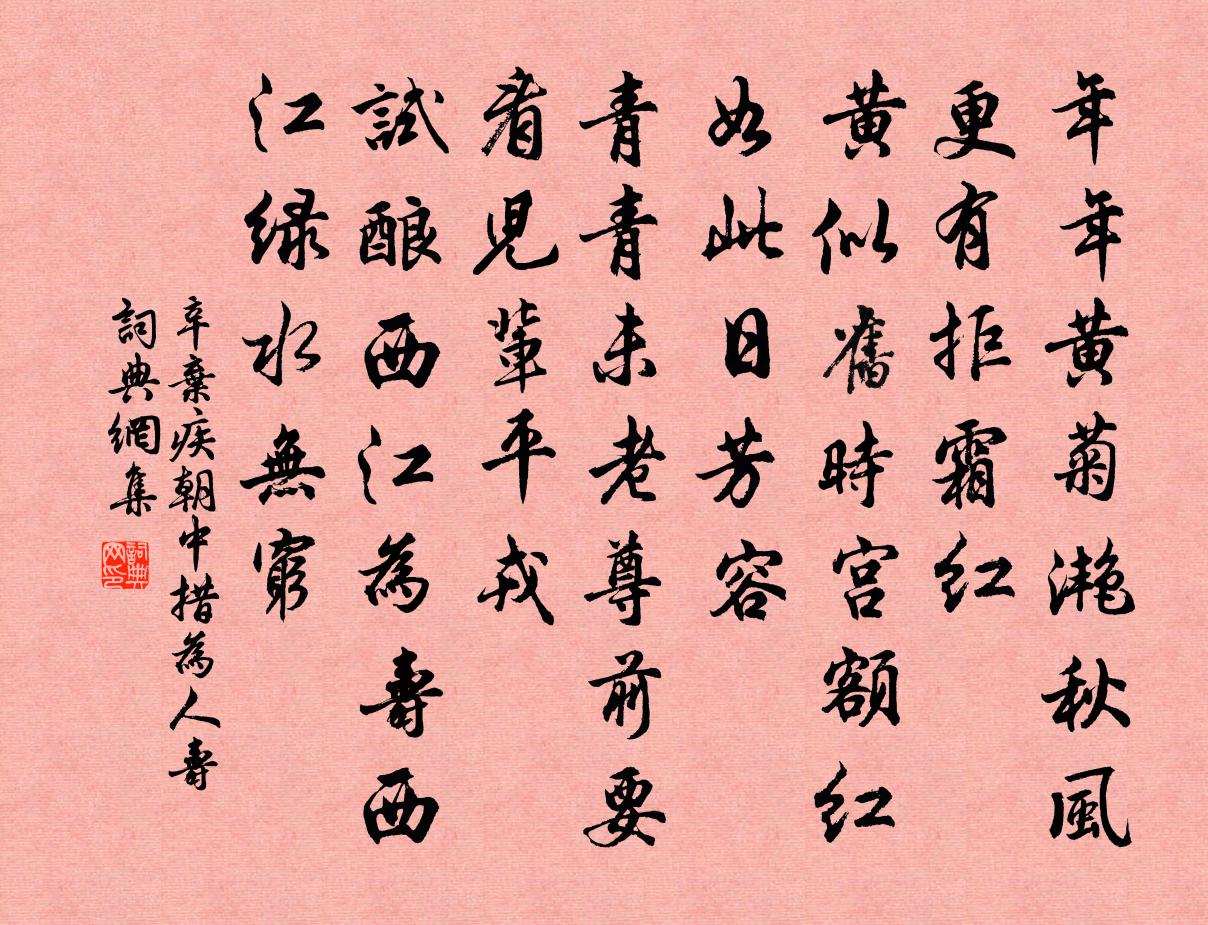 年年黄菊灔秋風
更有拒霜紅
黄似舊時宫額紅
如此日芳容
青青未老尊前要
看兒輩平戎
試酿西江為壽西
江緑水無窮
辛棄疾朝中措為人壽
詞典網集
詞典网印